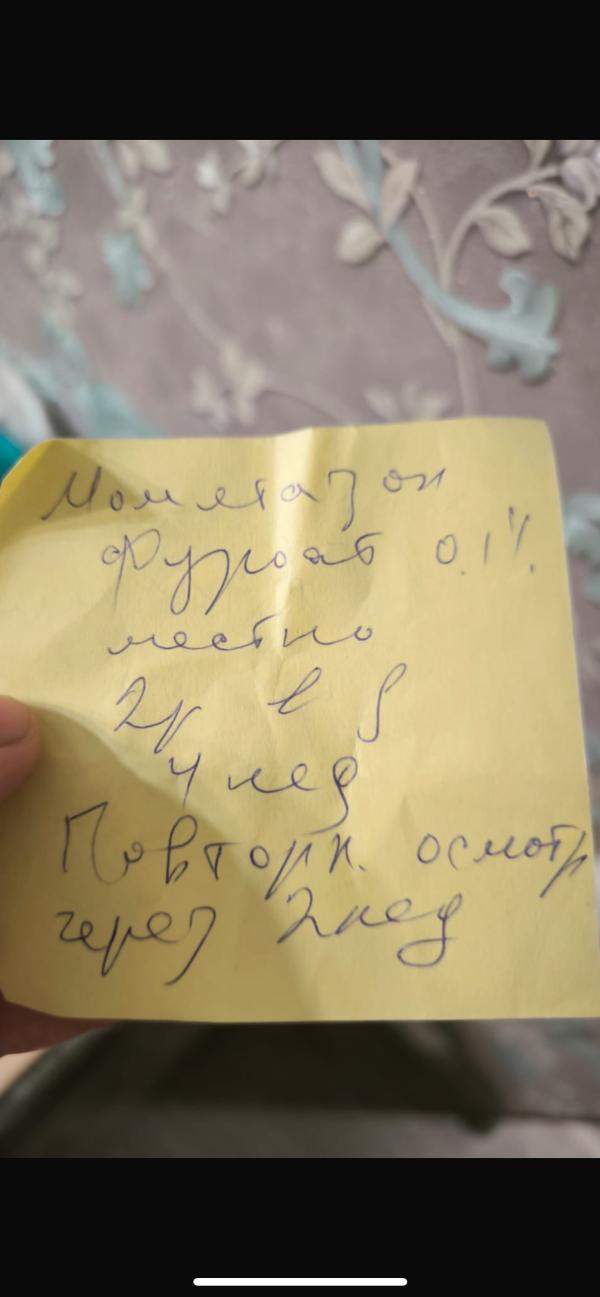 Мометазон
Фуроат 0.1%
местно
2р в д
4 нед
Повторн. осмотр
через 2 нед